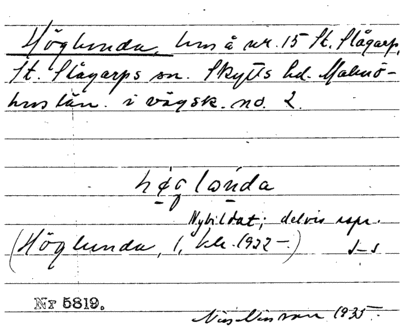 Höglunda, hus å nr. 15 St. Slågarp,
St. Slågarps sn. Skytts hd. Malmö-
hus län. i vägsk. no. 2.
höglonda
Nybildat; delvis
(Höglunda, 1, kl. 1922-)
Nr 5819.
Nils Nilsson 1935.